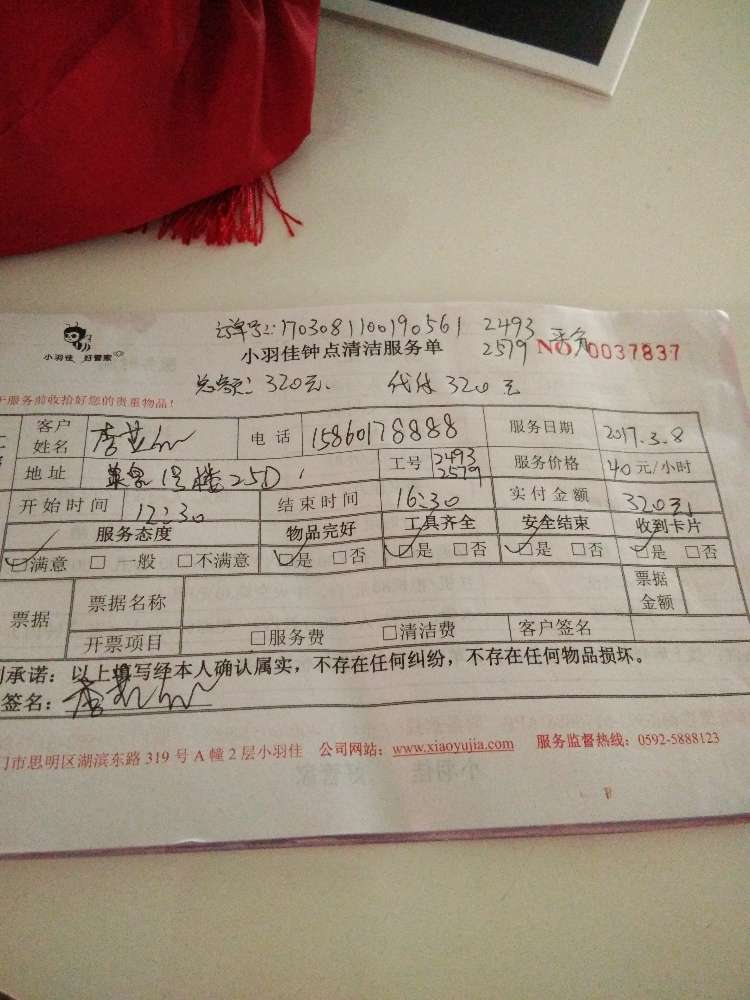 运单号:1703081100190561 2493
小羽佳 好管家
小羽佳钟点清洁服务单 2579 NO 0037837
总额:320元 代付320元
服务前收拾好您的贵重物品!
客户姓名 李 电话 15860178888 服务日期 2017.3.8
地址 号楼25D 工号 2493 2579 服务价格 40元/小时
开始时间 12:30 结束时间 16:30 实付金额 320元
服务态度 物品完好 工具齐全 安全结束 收到卡片
☑满意 □一般 □不满意 ☑是 □否 ☑是 □否 ☑是 □否 ☑是 □否
票据 票据名称 票据金额
开票项目 □服务费 □清洁费 客户签名
承诺:以上填写经本人确认属实,不存在任何纠纷,不存在任何物品损坏。
签名:
门市思明区湖滨东路319号A幢2层小羽佳 公司网站:www.xiaoyujia.com 服务监督热线:0592-5888123